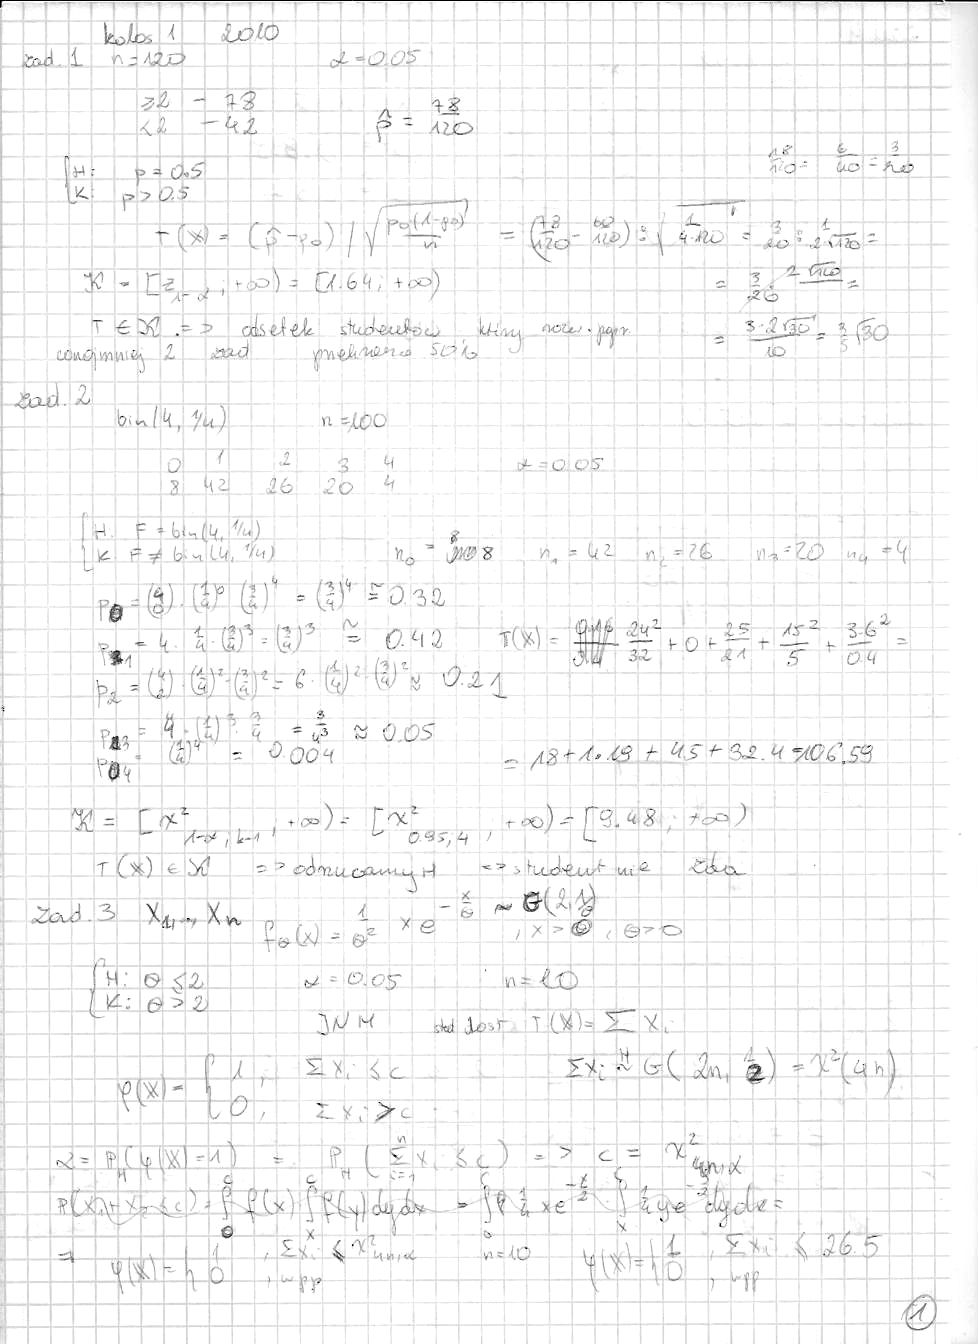 kolos 1 2010
zad. 1 n=120 α=0.05
≥2 - 78
<2 - 42
p̂ = 78/120
18/120 = 6/40 = 3/20
H: p = 0.5
K: p > 0.5
T(X) = (p̂-p₀) / √(p₀(1-p₀)/n) = (78/120 - 60/120) : √(1/(4·120)) = 3/20 : 1/(2√120) =
K = [z₁₋α ; +∞) = [1.64; +∞) = 3/20 · 2√120 =
T ∈ K => odsetek studentów, który rozw. popr. = 3·2√30/10 = 3/5 √30
conajmniej 2 zad przekracza 50%
zad. 2
bin(4, 1/4) n=100
0 1 2 3 4 α=0.05
8 42 26 20 4
H: F = bin(4, 1/4)
K: F ≠ bin(4, 1/4) n₀ = 8 n₁ = 42 n₂ = 26 n₃ = 20 n₄ = 4
p₀ = (4 0) · (1/4)⁰ (3/4)⁴ = (3/4)⁴ ≈ 0.32
p₁ = 4 · 1/4 · (3/4)³ = (3/4)³ ≈ 0.42 T(X) = 24²/32 + 0 + 25/21 + 15²/5 + 3.6²/0.4 =
p₂ = (4 2) · (1/4)² · (3/4)² = 6 · (1/4)² · (3/4)² ≈ 0.21
p₃ = 4 · (1/4)³ · 3/4 = 3/4³ ≈ 0.05
p₄ = (1/4)⁴ = 0.004 = 18 + 1.19 + 45 + 32.4 = 106.59
K = [χ²₁₋α; k-1 ; +∞) = [χ²0.95; 4 ; +∞) = [9.48; +∞)
T(X) ∈ K => odrzucamy H => student nie zda
zad. 3 X₁,..., Xn fθ(x) = 1/θ² x e^(-x/θ) ~ G(2, 1/θ) , x > 0 , θ > 0
H: θ ≤ 2 α = 0.05 n = 10
K: θ > 2
JNM stat dost. T(X) = ΣXi
φ(X) = { 1 , ΣXi ≤ c ΣXi ~ᴴ G(2n, 1/2) = χ²(4n)
0 , ΣXi > c
α = P_H(φ(X) = 1) = P_H(Σⁿᵢ₌₁ Xi ≤ c) => c = χ²4n,α
P(X₁+X₂ ≤ c) = ∫₀ᶜ f(x) ∫ₓᶜ f(y)dydx = ∫₀ᶜ 1/4 x e^(-x/2) · ∫ₓᶜ 1/4 y e^(-y/2) dydx =
=> φ(X) = { 1 , ΣXi ≤ χ²4n,α n=10 φ(X) = { 1 , ΣXi ≤ 26.5
0 , wpp 0 , wpp
1